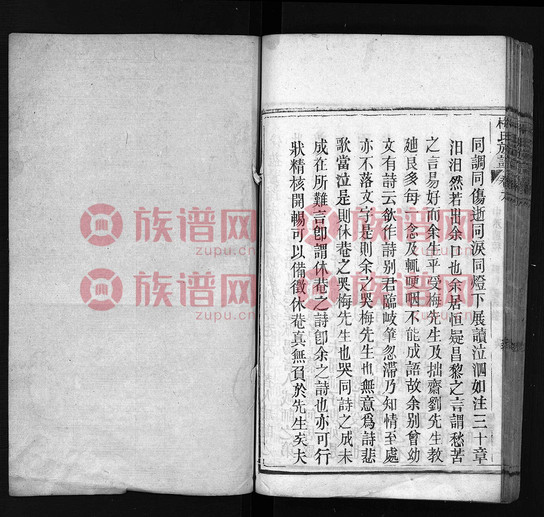 同調同傷逝同淚同燈下展讀泣泗如注三十章
汨汨然若出余口也余居恒疑昌黎之言謂愁苦
之言易好而余生平受梅先生及拙齋劉先生教
廸良多每一念及輒哽咽不能成語故余別曾幼
文有詩云欲作詩別君臨岐筆忽滯乃知情至處
亦不落文字是則余之哭梅先生也無意爲詩悲
歌當泣是則休菴之哭梅先生也哭同詩之成未
成在所難言卽謂休菴之詩卽余之詩也亦可行
狀精核開暢可以備徵休菴真無負於先生矣夫
族谱网
zupu.cn
族谱网
zupu.cn
族谱网
zupu.cn
族谱网
zupu.cn